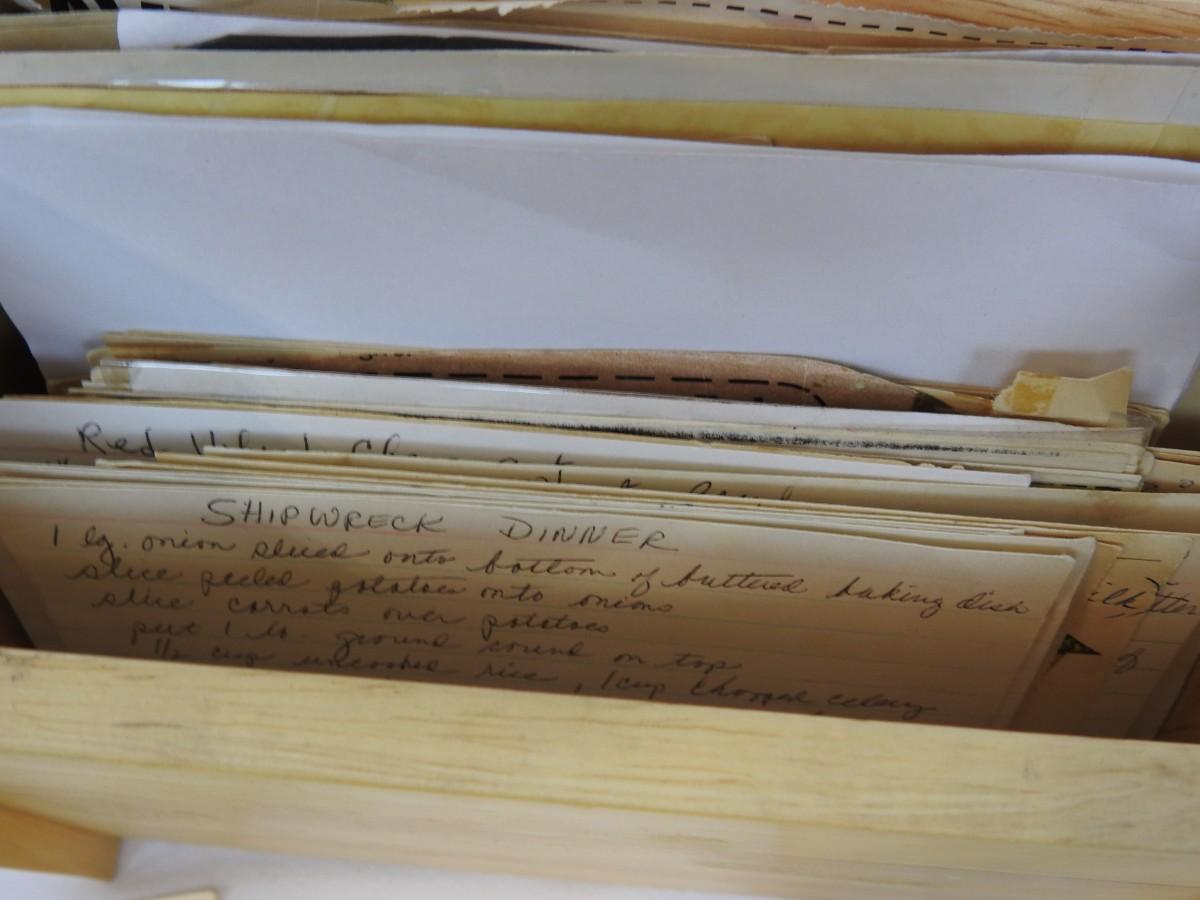 Red
SHIPWRECK DINNER
1 lg. onion sliced onto bottom of buttered baking dish
slice peeled potatoes onto onions
slice carrots over potatoes
put 1 lb. ground round on top
1/2 cup uncooked rice, 1 cup chopped celery